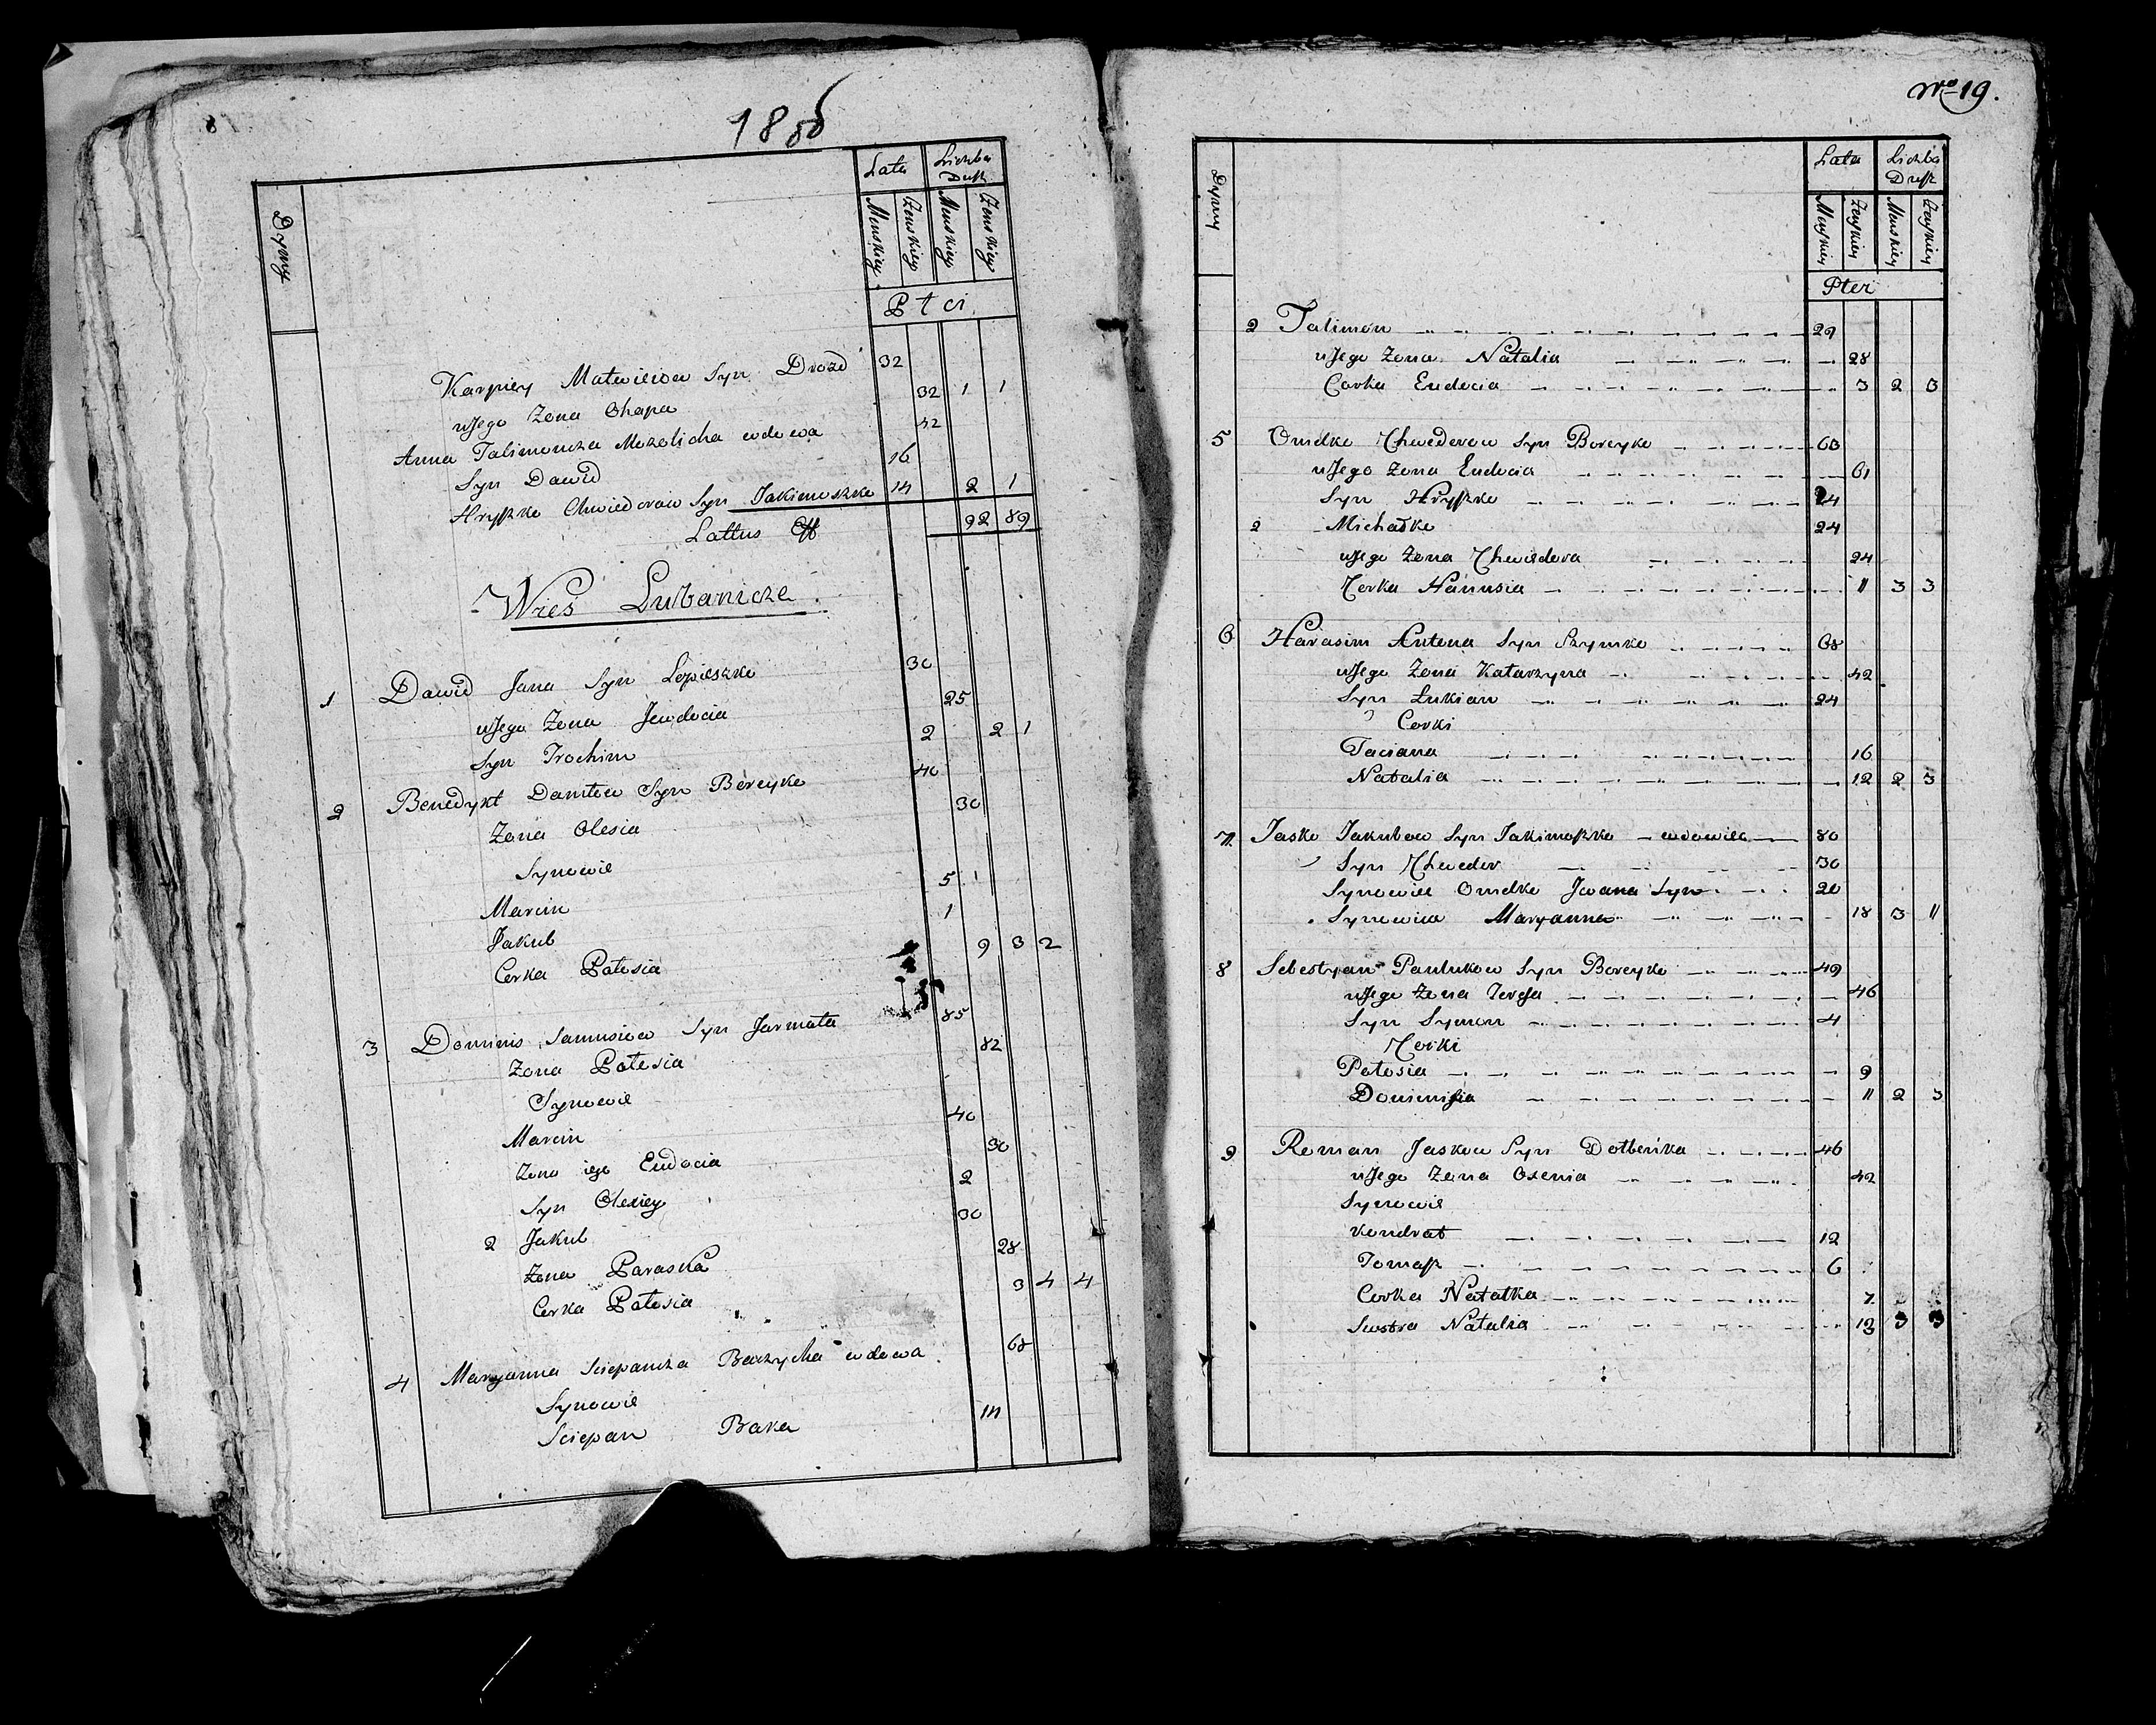 Dymy
Lata
Liczba Dusz
Męskiey
Żenskiey
Męskiey
Żenskiey
Płci
Karpiey Matwieiow Syn Drozd 32
u Jego Zona Ohapa 32 1 1
Anna Talimoncza Mozolicha wdowa 42
Syn Dawid 16
Hryszko Chwiedorow Syn Jakimoszko 14 2 1
Lattus 92 89
Wieś Lubanicze
1 Dawid Jana Syn Lopieszko 30
u Jego Zona Jewdocia 25
Syn Trochim 2 2 1
2 Benedykt Daniłow Syn Boreyko 40
Zona Olesia 30
Synowie
Marcin 5
Jakub 1
Corka Połosia 9 3 2
3 Dominis Samusiow Syn Jarmała 85
Zona Połosia 82
Synowie
Marcin 40
Zona iego Eudocia 30
Syn Olexiey 2
2 Jakub 30
Zona Paraska 28
Corka Połosia 3 4 4
4 Maryanna Sciepancza wdowa 68
Synowie
Sciepan Baka
No 19.
Dymy
Lata
Liczba Dusz
Męskiey
Żeńskiey
Męskiey
Żeńskiey
Płci
2 Talimon 29
u Jego Zona Natalia 28
Corka Eudocia 3 2 3
5 Omelko Chwedorow Syn Boreyko 60
u Jego Zona Eudocia 61
Syn Hryszko 24
2 Michałko 24
u Jego Zona Chwiedora 24
Corka Hanusia 11 3 3
6 Harasim Antona Syn Szymko 68
u Jego Zona Katarzyna 42
Syn Łukian 24
Corki
Taciana 16
Natalia 12 2 3
7 Jasko Jakubow Syn Jakimoszko wdowiec 80
Syn Chwedor 30
Synowiec Omelko Jwana Syn 20
Synowica Maryanna 18 3 1
8 Sebestyan Pawlukow Syn Boreyko 49
u Jego Zona Teressa 46
Syn Symon 4
Corki
Połosia 9
Dominisia 11 2 3
9 Roman Jaskow Syn Dołbeńka 46
u Jego Zona Oxenia 42
Synowie
Kondrat 12
Tomasz 6
Corka Natalka 7
Siostra Natalia 12 3 3